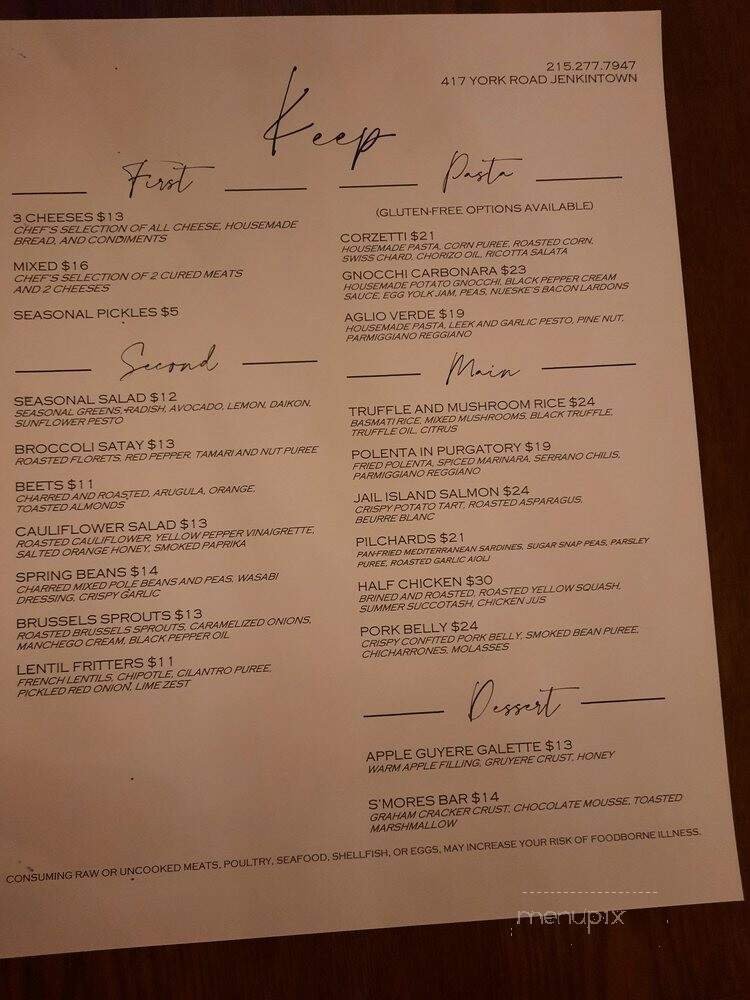 215.277.7947
417 YORK ROAD JENKINTOWN
Keep
First
3 CHEESES $13
CHEF'S SELECTION OF ALL CHEESE, HOUSEMADE
BREAD, AND CONDIMENTS
MIXED $16
CHEF'S SELECTION OF 2 CURED MEATS
AND 2 CHEESES
SEASONAL PICKLES $5
Second
SEASONAL SALAD $12
SEASONAL GREENS, RADISH, AVOCADO, LEMON, DAIKON,
SUNFLOWER PESTO
BROCCOLI SATAY $13
ROASTED FLORETS, RED PEPPER, TAMARI AND NUT PUREE
BEETS $11
CHARRED AND ROASTED, ARUGULA, ORANGE,
TOASTED ALMONDS
CAULIFLOWER SALAD $13
ROASTED CAULIFLOWER, YELLOW PEPPER VINAIGRETTE,
SALTED ORANGE HONEY, SMOKED PAPRIKA
SPRING BEANS $14
CHARRED MIXED POLE BEANS AND PEAS, WASABI
DRESSING, CRISPY GARLIC
BRUSSELS SPROUTS $13
ROASTED BRUSSELS SPROUTS, CARAMELIZED ONIONS,
MANCHEGO CREAM, BLACK PEPPER OIL
LENTIL FRITTERS $11
FRENCH LENTILS, CHIPOTLE, CILANTRO PUREE,
PICKLED RED ONION, LIME ZEST
Pasta
(GLUTEN-FREE OPTIONS AVAILABLE)
CORZETTI $21
HOUSEMADE PASTA, CORN PUREE, ROASTED CORN,
SWISS CHARD, CHORIZO OIL, RICOTTA SALATA
GNOCCHI CARBONARA $23
HOUSEMADE POTATO GNOCCHI, BLACK PEPPER CREAM
SAUCE, EGG YOLK JAM, PEAS, NUESKE'S BACON LARDONS
AGLIO VERDE $19
HOUSEMADE PASTA, LEEK AND GARLIC PESTO, PINE NUT,
PARMIGGIANO REGGIANO
Main
TRUFFLE AND MUSHROOM RICE $24
BASMATI RICE, MIXED MUSHROOMS, BLACK TRUFFLE,
TRUFFLE OIL, CITRUS
POLENTA IN PURGATORY $19
FRIED POLENTA, SPICED MARINARA, SERRANO CHILIS,
PARMIGGIANO REGGIANO
JAIL ISLAND SALMON $24
CRISPY POTATO TART, ROASTED ASPARAGUS,
BEURRE BLANC
PILCHARDS $21
PAN-FRIED MEDITERRANEAN SARDINES, SUGAR SNAP PEAS, PARSLEY
PUREE, ROASTED GARLIC AIOLI
HALF CHICKEN $30
BRINED AND ROASTED, ROASTED YELLOW SQUASH,
SUMMER SUCCOTASH, CHICKEN JUS
PORK BELLY $24
CRISPY CONFITED PORK BELLY, SMOKED BEAN PUREE,
CHICHARRONES, MOLASSES
Dessert
APPLE GUYERE GALETTE $13
WARM APPLE FILLING, GRUYERE CRUST, HONEY
S'MORES BAR $14
GRAHAM CRACKER CRUST, CHOCOLATE MOUSSE, TOASTED
MARSHMALLOW
CONSUMING RAW OR UNCOOKED MEATS, POULTRY, SEAFOOD, SHELLFISH, OR EGGS, MAY INCREASE YOUR RISK OF FOODBORNE ILLNESS.
menupix